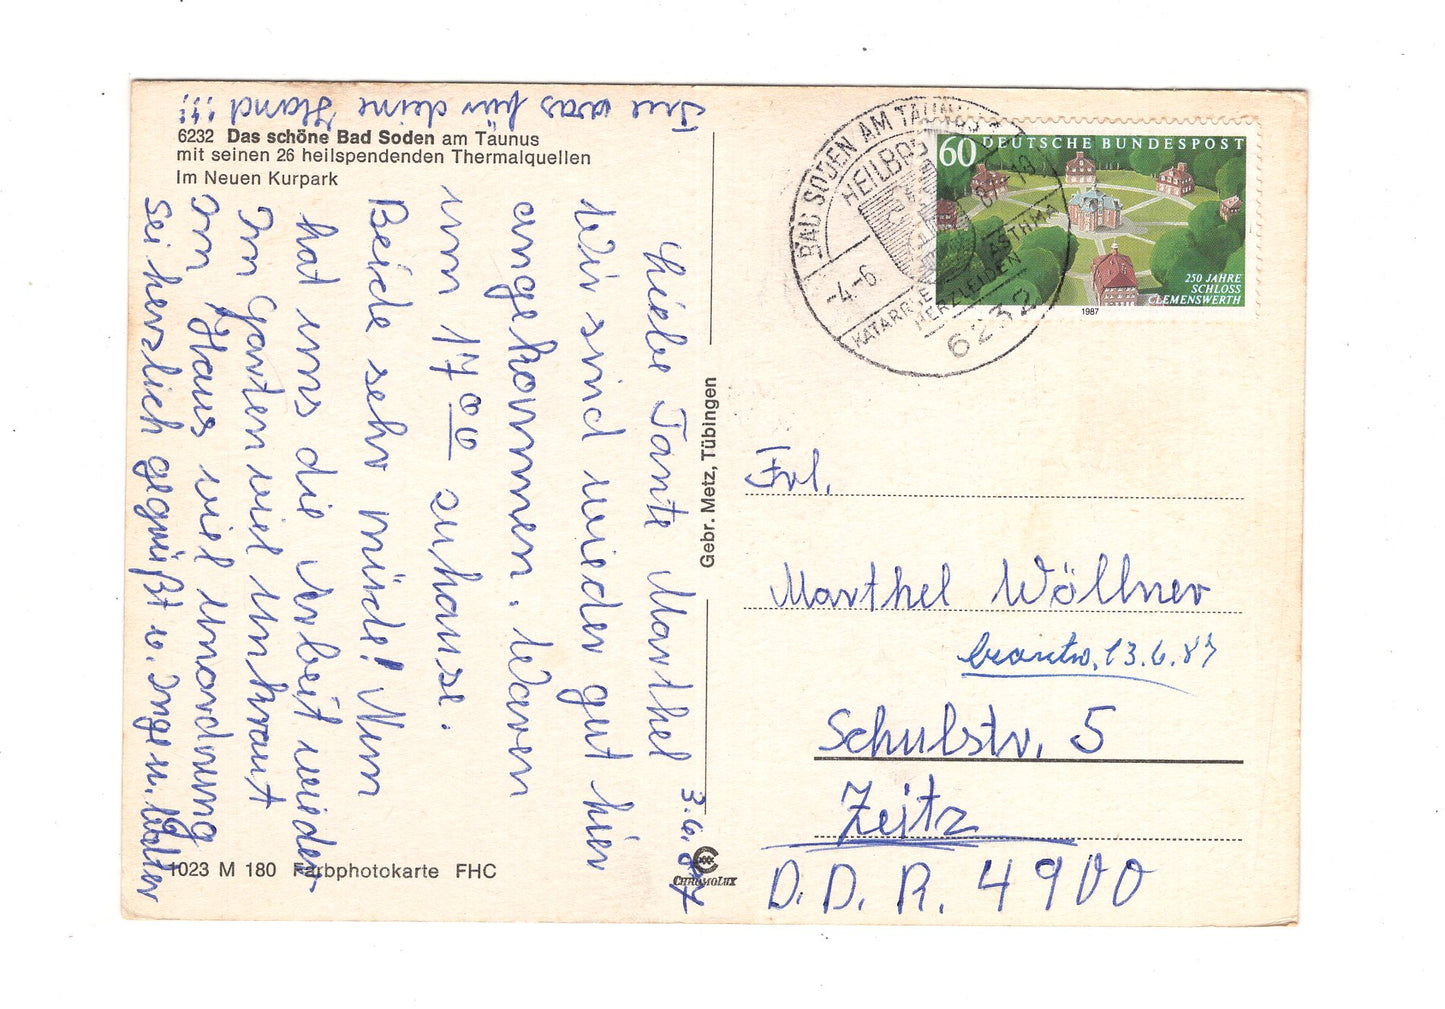 6232 Das schöne Bad Soden am Taunus
mit seinen 26 heilspendenden Thermalquellen
Im Neuen Kurpark
3.6.87
Liebe Tante Marthel
Wir sind wieder gut hier
angekommen. Waren
um 17 00 zuhause.
Beide sehr müde! Nun
hat uns die Arbeit wieder
Im Garten viel Unkraut
Im Haus viel Unordnung
Sei herzlich gegrüßt v. Inge u. Walter
Tue was für deine Hand!!!
1023 M 180 Farbphotokarte FHC
Gebr. Metz, Tübingen
CHROMOLUX
BAD SODEN AM TAUNUS
HEILBAD
-4.-6
87-18
KATARRHE ASTHMA
HERZLEIDEN
6232
60 DEUTSCHE BUNDESPOST
250 JAHRE
SCHLOSS
CLEMENSWERTH
1987
Frl.
Marthel Wöllner
beantw. 13.6.87
Schulstr. 5
Zeitz
D.D.R. 4900